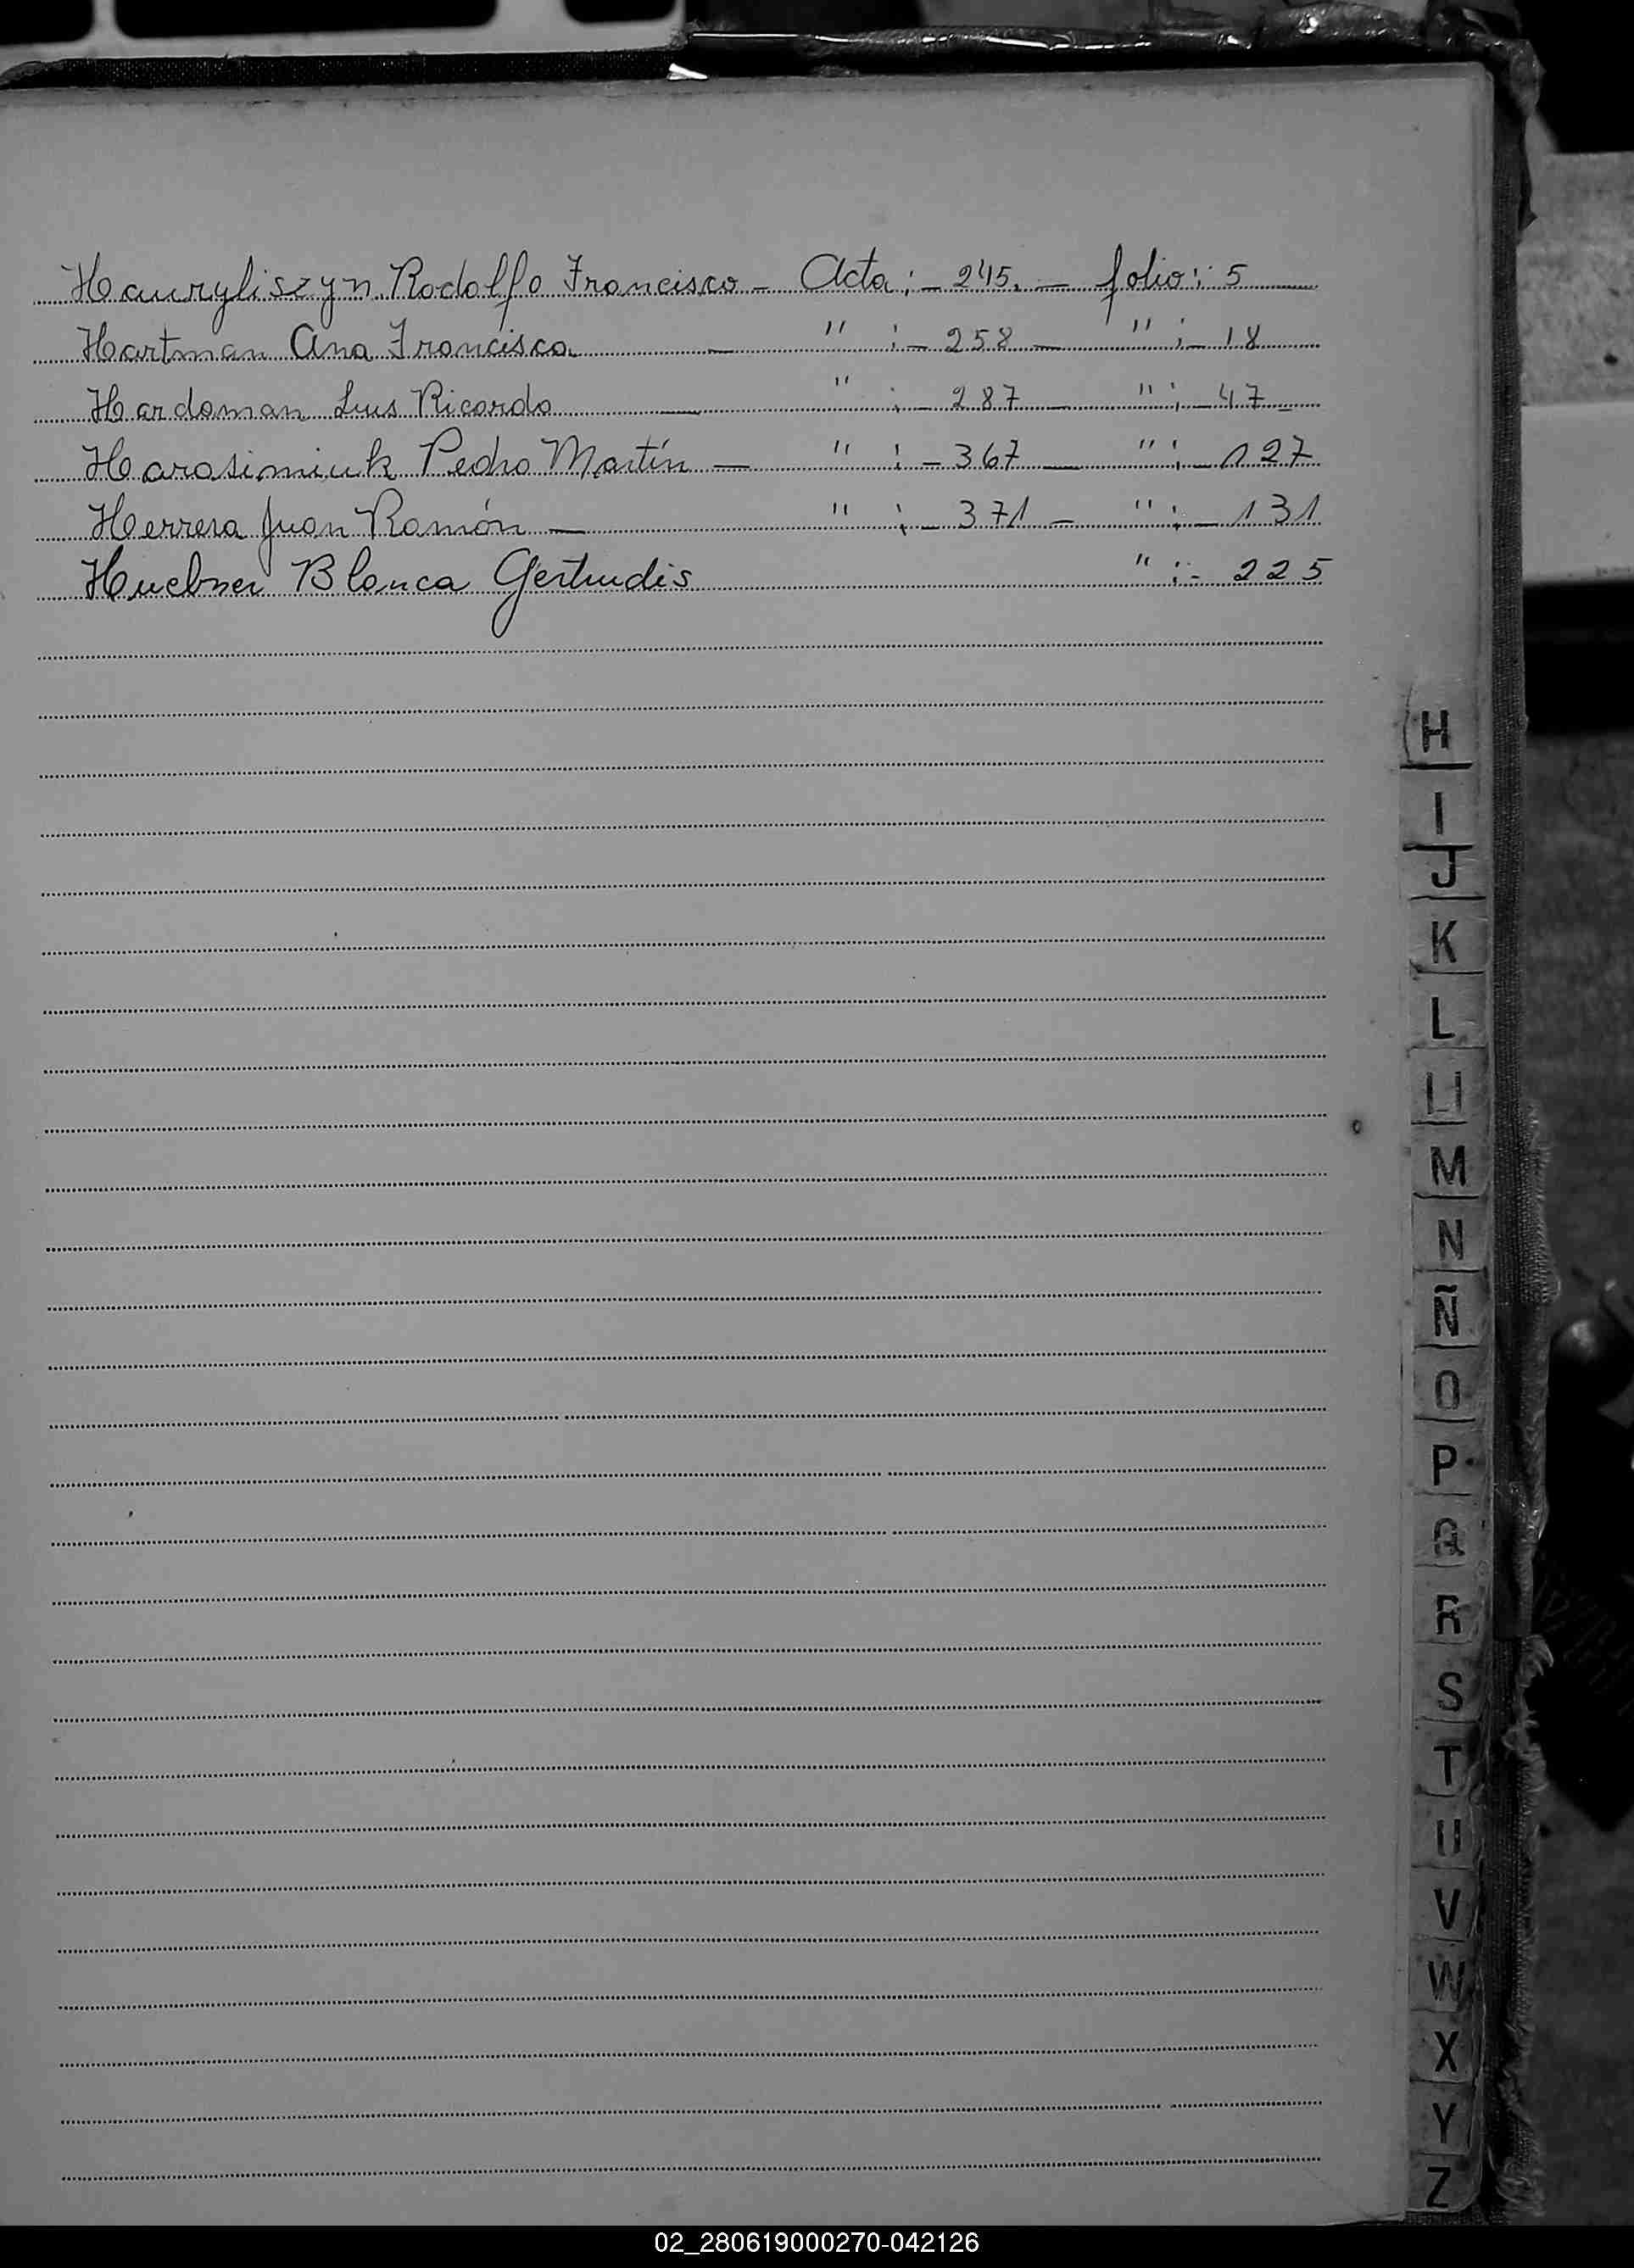 Hauryliszyn Rodolfo Francisco - Acta: - 245. - folio: 5
Hartman Ana Francisca - " : - 258 - " : - 18
Hardaman Luis Ricardo - " : - 287 - " : - 47 -
Harasimiuk Pedro Martín - " : - 367 - " : - 127
Herrera Juan Ramón - " : - 371 - " : - 131
Huebner Blanca Gertrudis " : - 225
H
I
J
K
L
Ll
M
N
Ñ
O
P
Q
R
S
T
U
V
W
X
Y
Z
02_280619000270-042126